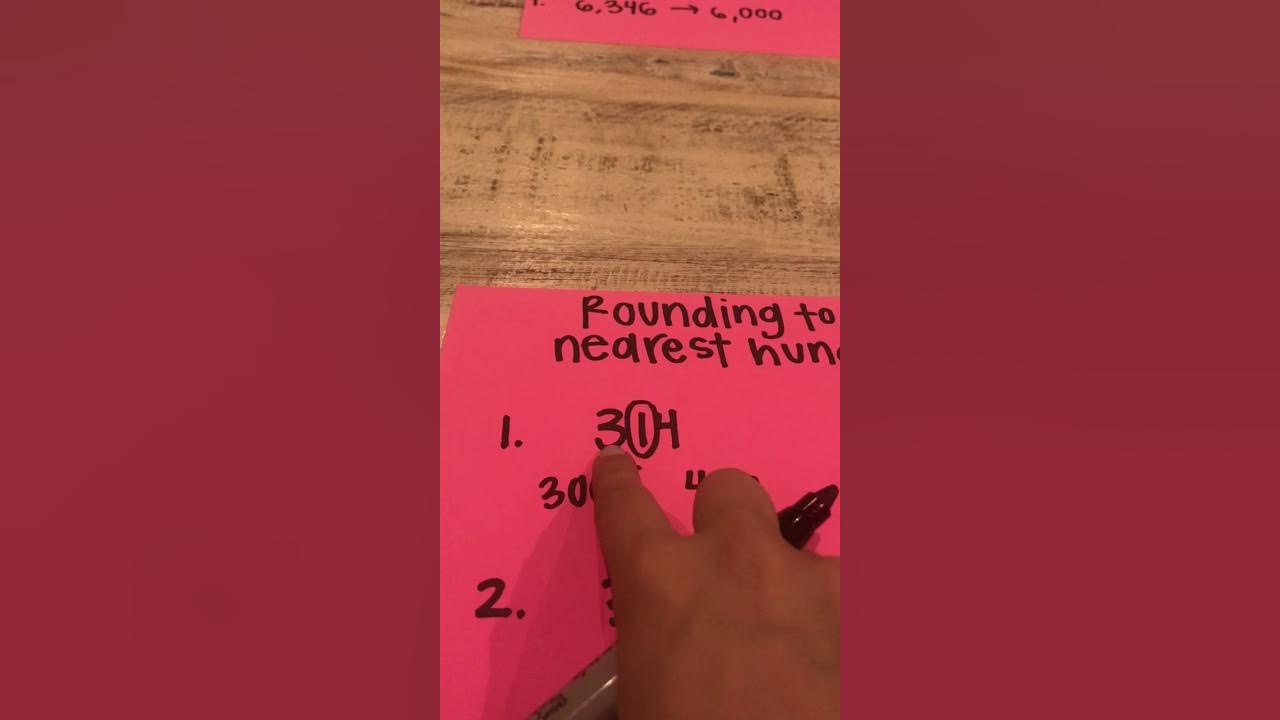 1. 6,346 → 6,000
Rounding to
nearest hun
1. 314
300 4
2.